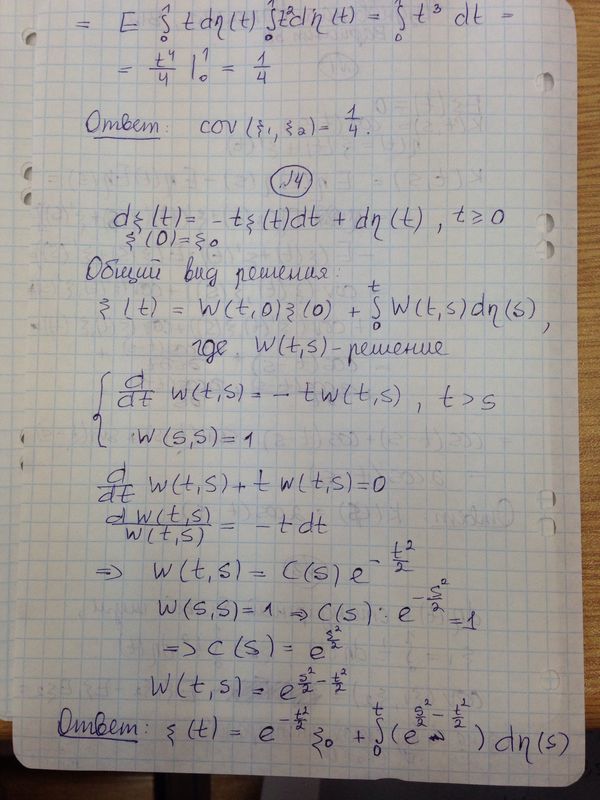 = E ∫₀¹ t dη(t) ∫₀¹ t² dη(t) = ∫₀¹ t³ dt =
= t⁴/4 |₀¹ = 1/4
Ответ: cov(ξ₁, ξ₂) = 1/4.
№4
dξ(t) = - tξ(t)dt + dη(t), t ≥ 0
ξ(0) = ξ₀
Общий вид решения:
ξ(t) = W(t,0)ξ(0) + ∫₀ᵗ W(t,s)dη(s),
где W(t,s) - решение
{ d/dt W(t,s) = - t W(t,s), t > s
W(s,s) = 1
d/dt W(t,s) + t W(t,s) = 0
d W(t,s)/W(t,s) = - t dt
⇒ W(t,s) = C(s) e^(-t²/2)
W(s,s) = 1 ⇒ C(s) · e^(-s²/2) = 1
⇒ C(s) = e^(s²/2)
W(t,s) = e^(s²/2 - t²/2)
Ответ: ξ(t) = e^(-t²/2) ξ₀ + ∫₀ᵗ (e^(s²/2 - t²/2)) dη(s)